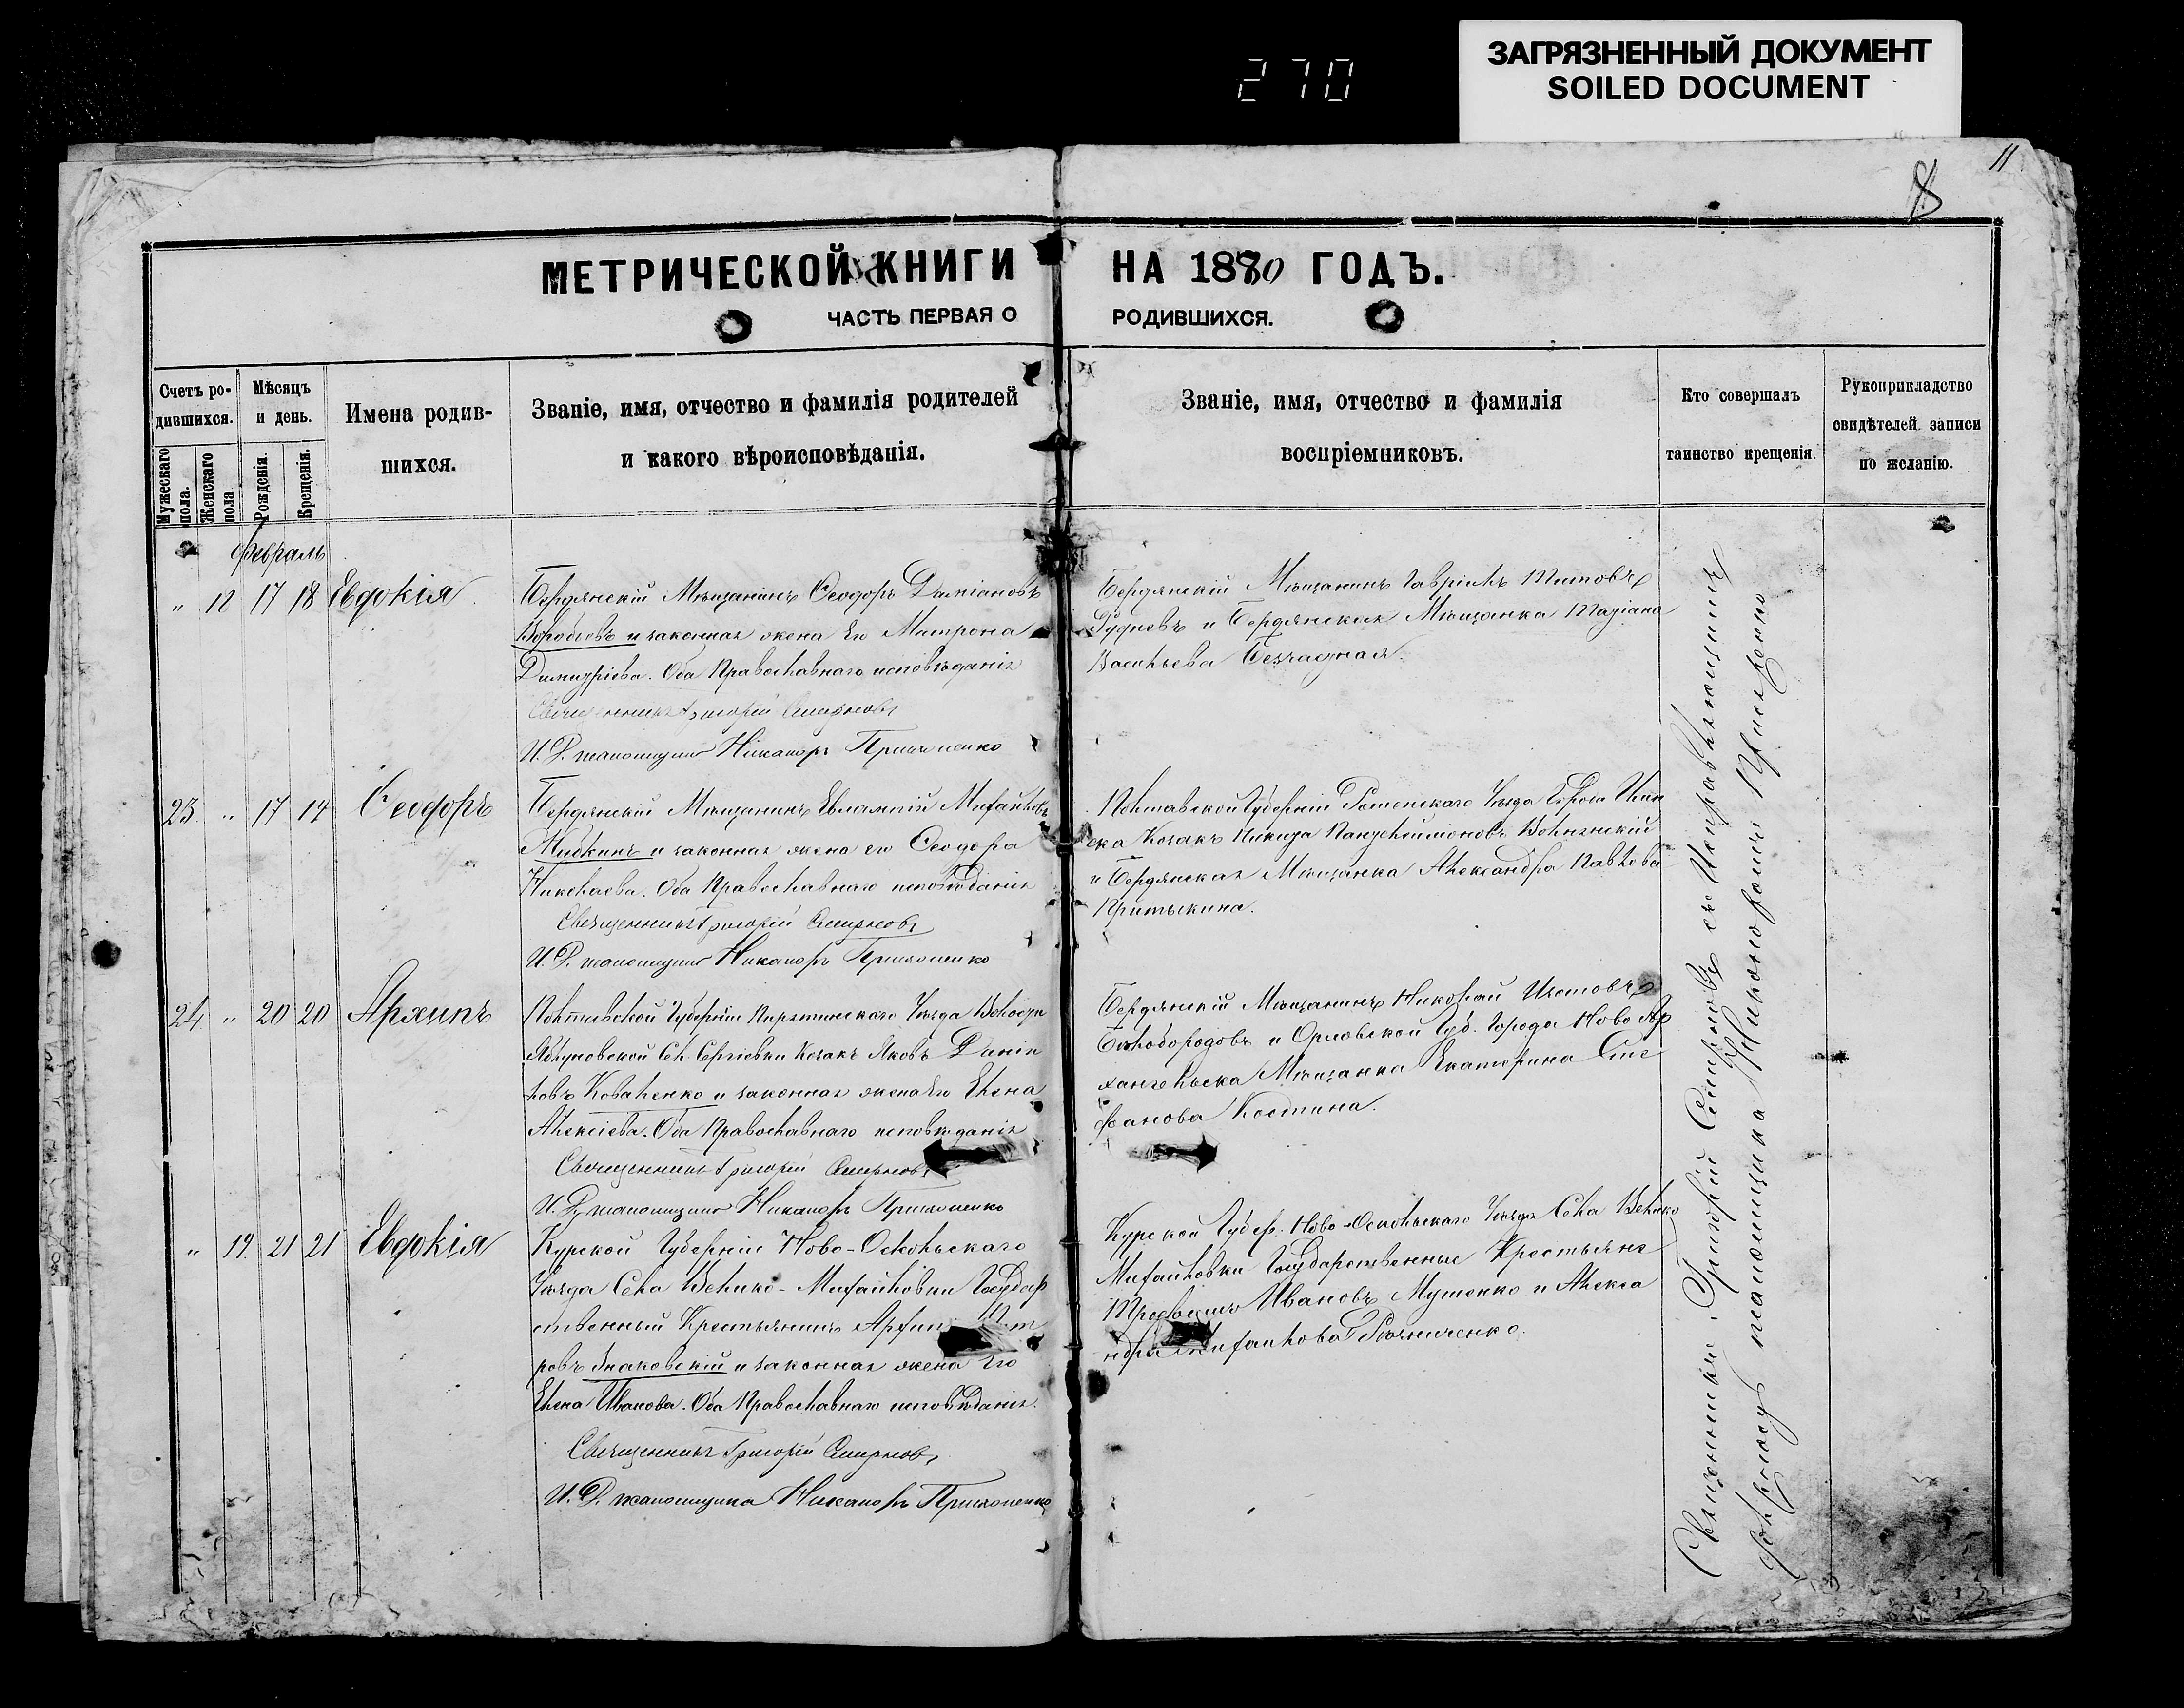 270
ЗАГРЯЗНЕННЫЙ ДОКУМЕНТ
SOILED DOCUMENT
11
8
МЕТРИЧЕСКОЙ КНИГИ НА 1880 ГОДЪ.
ЧАСТЬ ПЕРВАЯ О РОДИВШИХСЯ.
Счетъ ро-
дившихся.
Мужескаго пола.
Женскаго пола
Мѣсяцъ
и день.
Рожденія.
Крещенія.
Имена родив-
шихся.
Званіе, имя, отчество и фамилія родителей
и какого вѣроисповѣданія.
Званіе, имя, отчество и фамилія
воспріемниковъ.
Кто совершалъ
таинство крещенія.
Рукоприкладство
свидѣтелей записи
по желанію.
Февраль
" 12 17 18 Евдокія
Бердянскій Мѣщанинъ Ѳеодоръ Даміановъ
Воробьевъ и законная жена Его Матрона
Димитріева. Оба Православнаго исповѣданія
Священникъ Григорій Смирновъ
И. Д. псаломщика Никаноръ
Бердянскій Мѣщанинъ Гавріилъ Титовъ
Рудневъ и Бердянская Мѣщанка Татіана
Васильева
23 " 17 17 Ѳеодоръ
Бердянскій Мѣщанинъ Евлампій Михайловъ
Жидкинъ и законная жена его Ѳеодора
Николаева. Оба Православнаго исповѣданія
Священникъ Григорій Смирновъ
И. Д. псаломщика Никаноръ
Полтавской Губерніи Роменскаго Уѣзда
Козакъ Никита Пантелеимоновъ Волнянскій
и Бердянская Мѣщанка Александра Павлова
Притыкина.
24 " 20 20 Архипъ
Полтавской Губерніи Пирятинскаго Уѣзда
Яблуновской Сел. Сергіевки Козакъ Яковъ Даніи
ловъ Коваленко и законная жена Его Елена
Алексіева. Оба Православнаго исповѣданія
Священникъ Григорій Смирновъ
И. Д. псаломщика Никаноръ
Бердянскій Мѣщанинъ Николай
Бѣлобородовъ и Орловской Губ. Города Ново Ар
хангельска Мѣщанка Екатерина Сте
фанова Костина.
" 19. 21 21 Евдокія
Курской Губерніи Ново-Оскольскаго
Уѣзда Села Велико-Михайловки Государ
ственный Крестьянинъ Пет
ровъ Знаковскій и законная жена Его
Елена Иванова. Оба Православнаго исповѣданія.
Священникъ Григорій Смирновъ
И. Д. псаломщика Никаноръ
Курской Губер. Ново-Оскольскаго Уѣзда Села Велико
Михайловки Государственные Крестьяне
Ивановъ Мушенко и Алекса
ндра Михайлова
Священникъ Григорій Смирновъ съ Исправляющимъ
должность псаломщика Никаноромъ